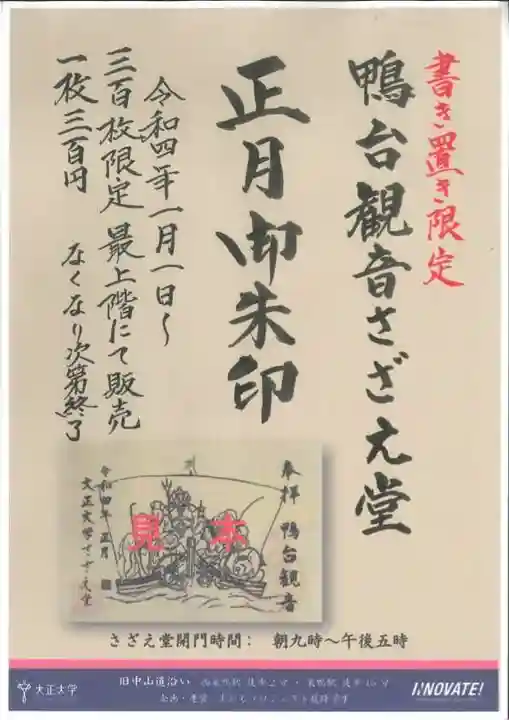 書き置き限定
鴨台観音さざえ堂
正月御朱印
令和四年一月一日〜
三百枚限定 最上階にて販売
一枚三百円 なくなり次第終了
奉拝 鴨台観音
見本
令和四年 正月
大正大学さざえ堂
さざえ堂開門時間： 朝九時〜午後五時
大正大学
旧中山道沿い
I'NNOVATE!